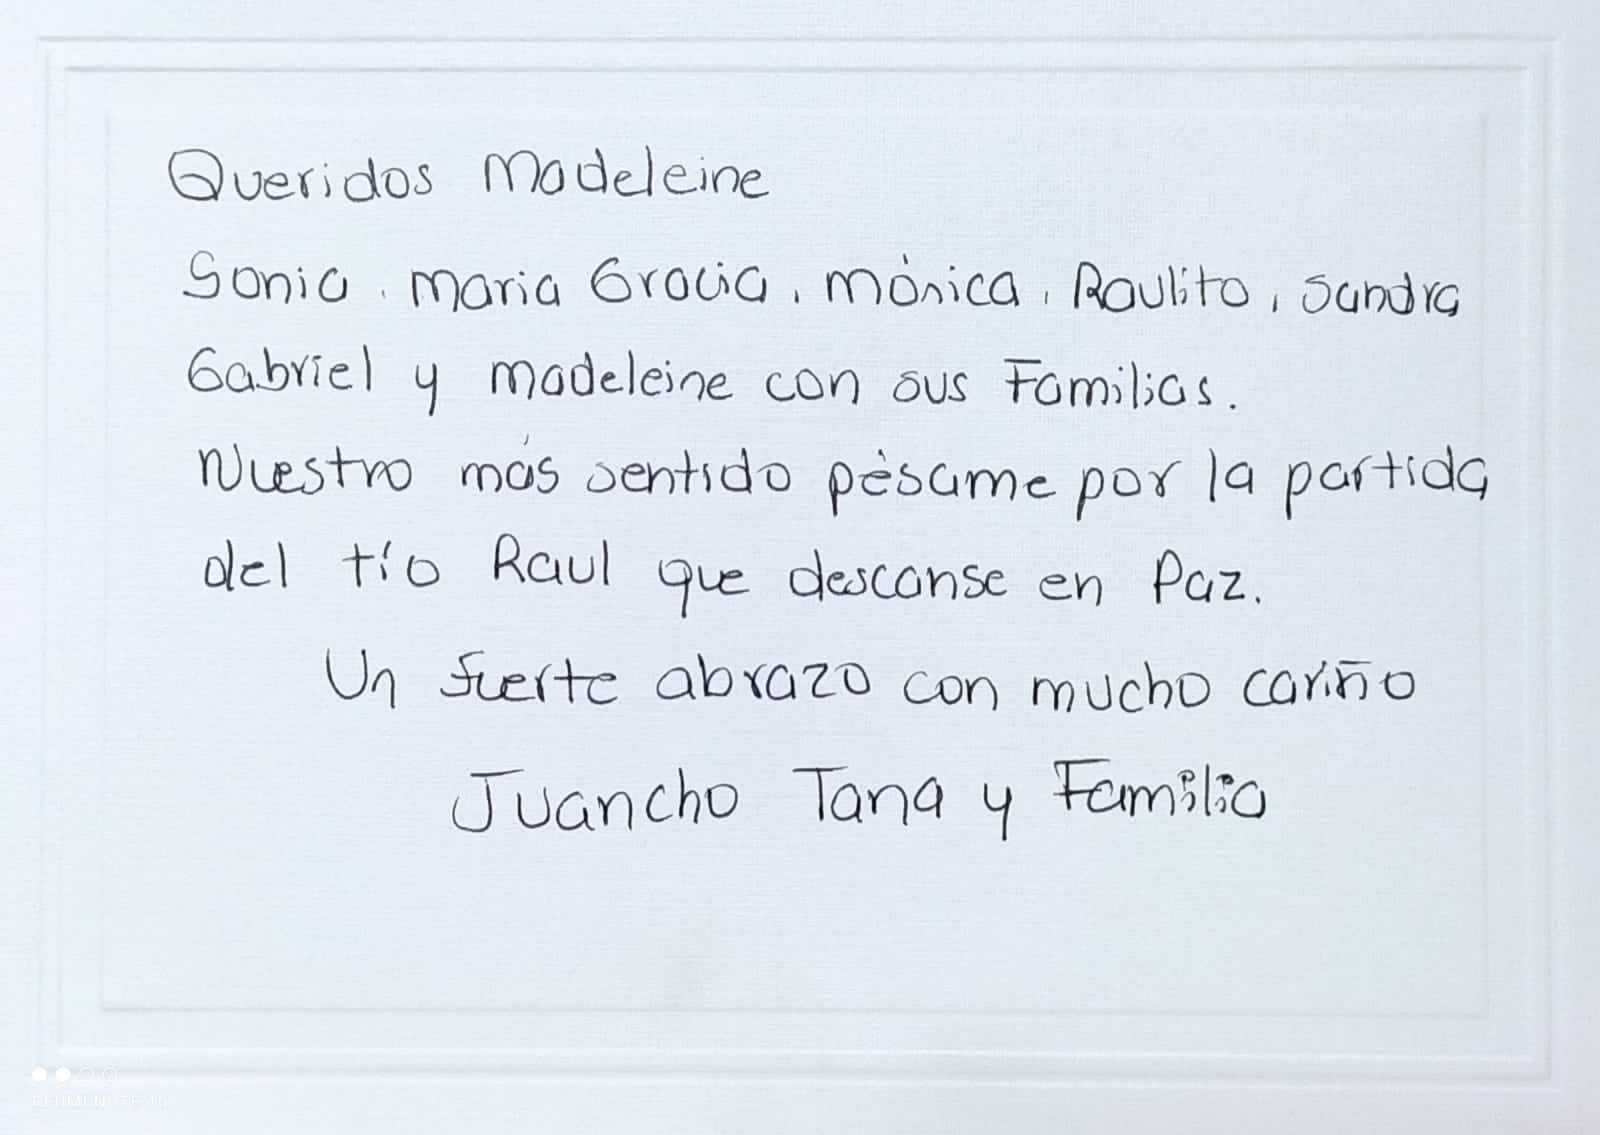 Queridos Madeleine
Sonia, Maria Gracia, Mónica, Raulito, Sandra
Gabriel y Madeleine con sus Familias.
Nuestro más sentido pésame por la partida
del tío Raul que descanse en Paz.
Un fuerte abrazo con mucho cariño
Juancho Tana y Familia